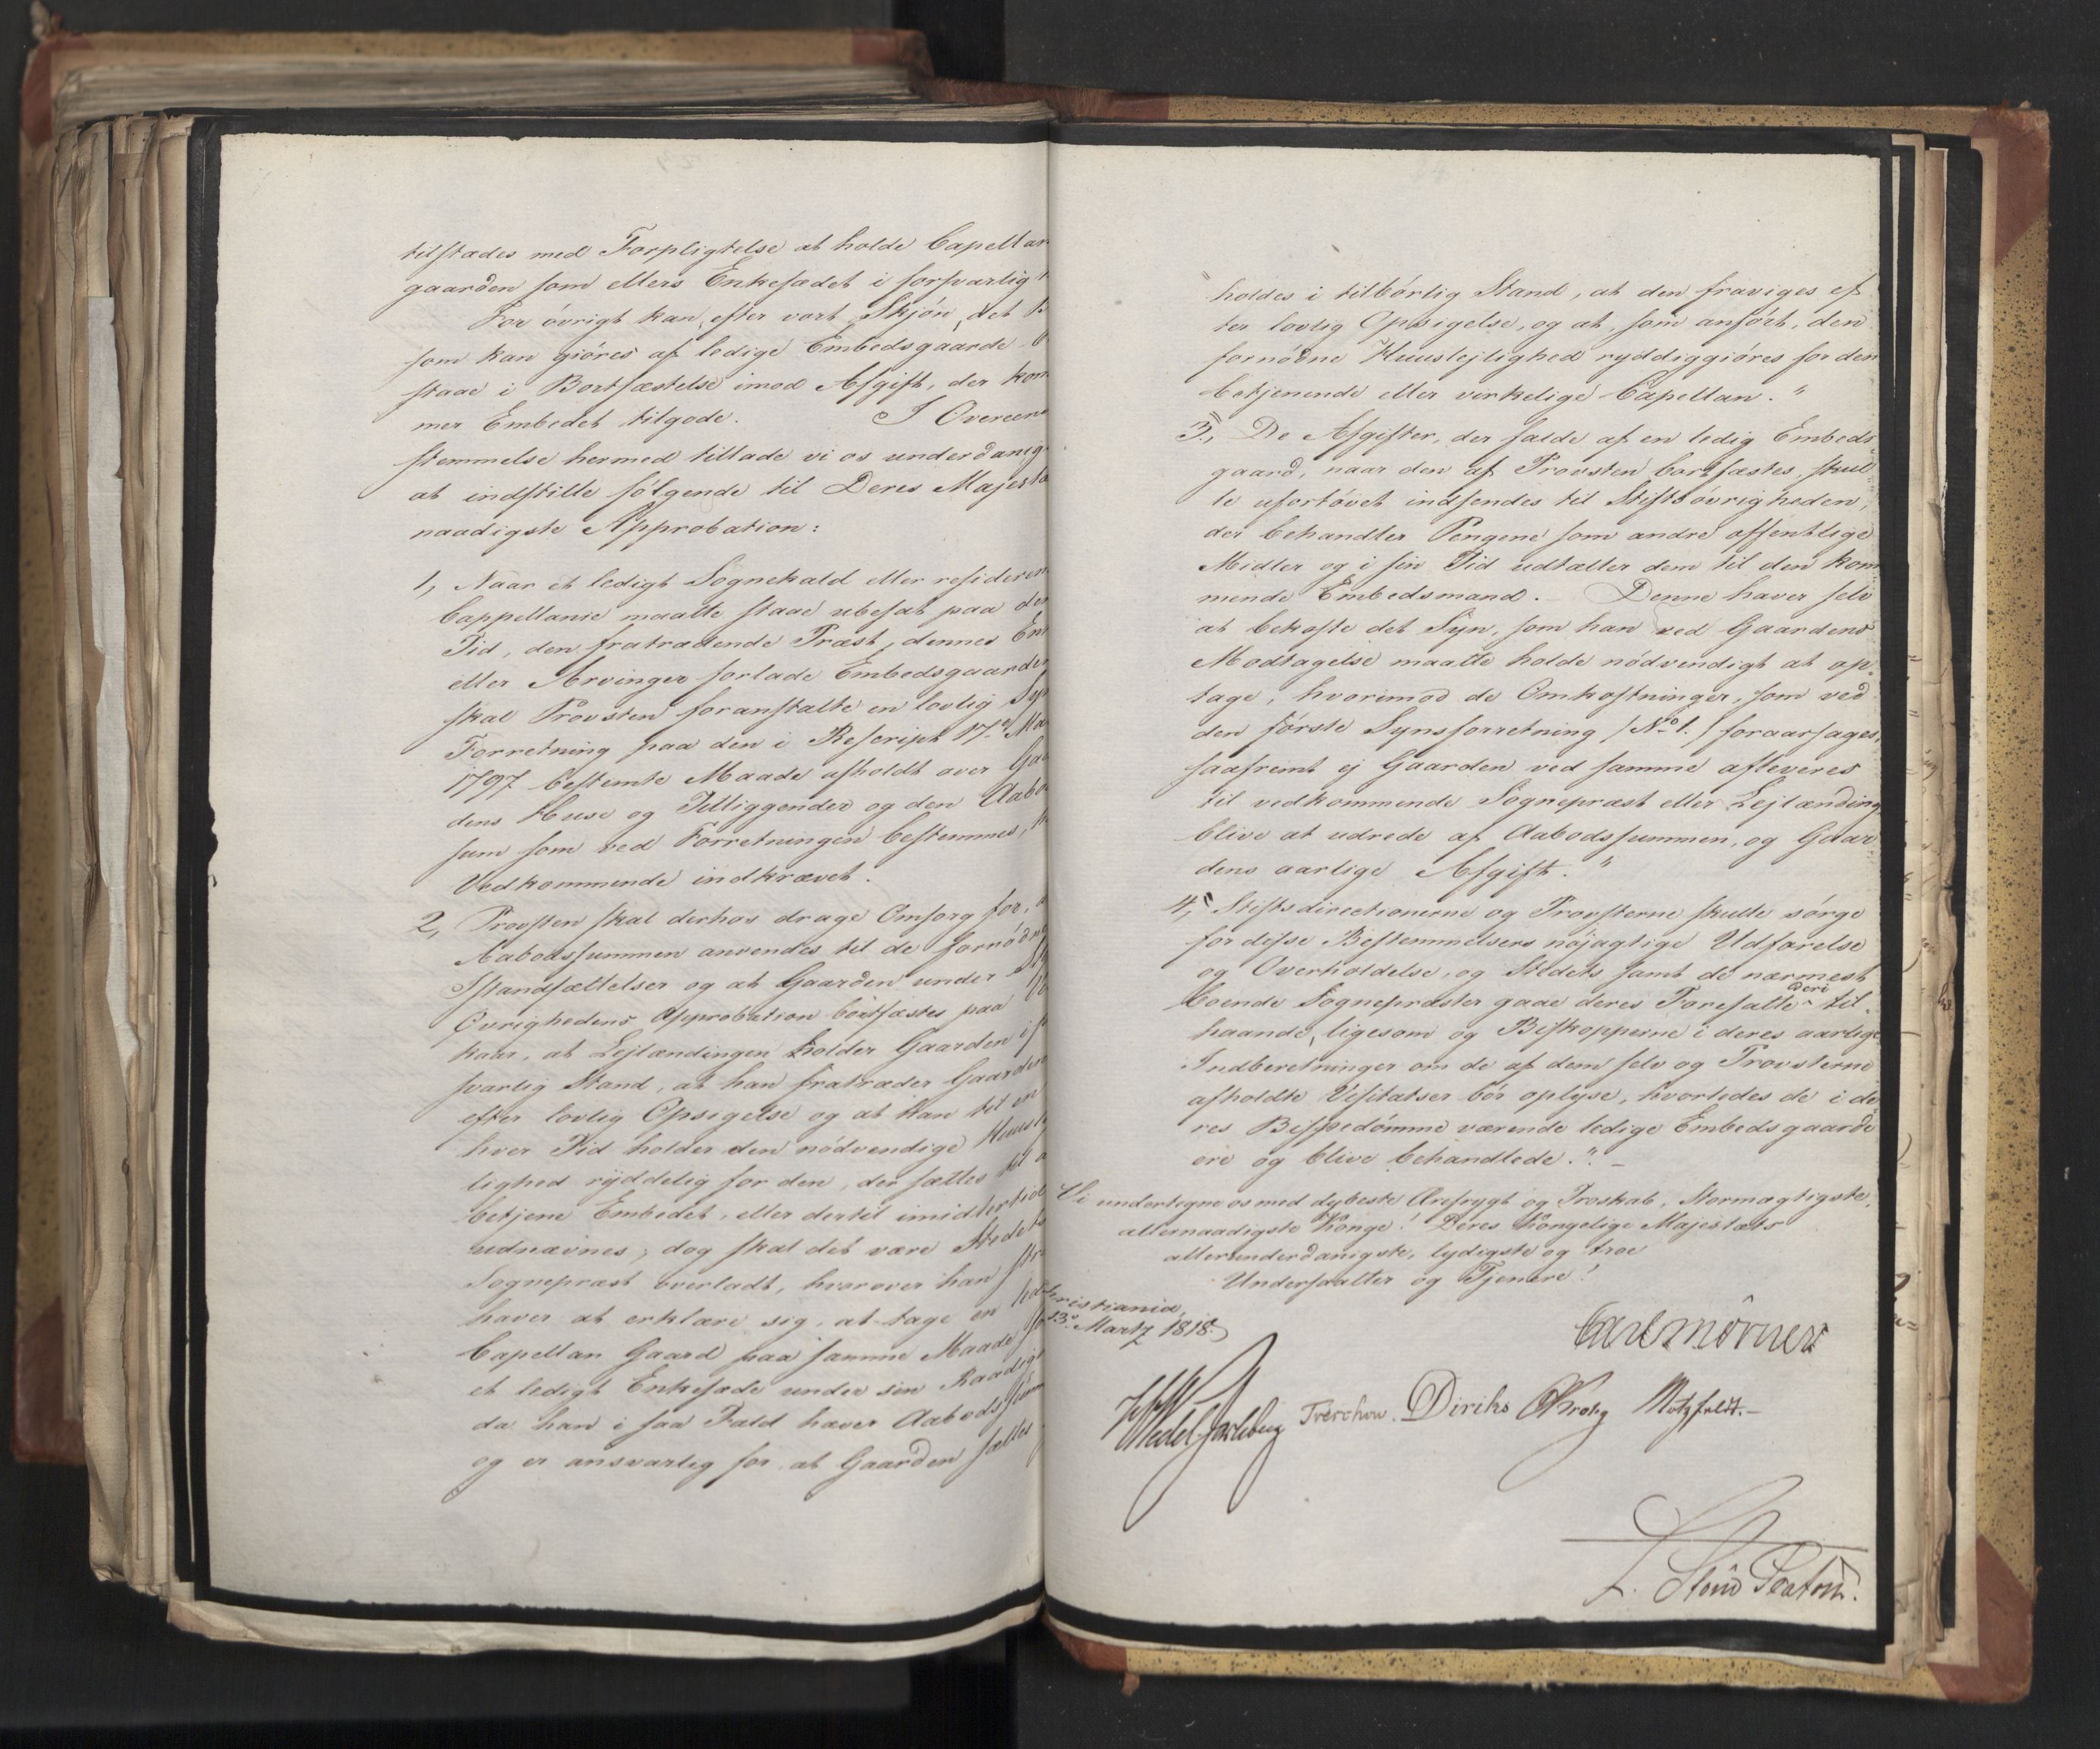 tilstædes med Forpligtelse at holde Capellan
gaarden som ellers Enkesædet i forsvarlig
For övrigt kan, efter vort Skjön, det
som kan giöres af ledige Embedsgaarde
staae i Bortfæstelse imod Afgift, der kom
mer Embedet tilgode. I Overeens
stemmelse hermed tillade vi os underdanig
at indstille fölgende til Deres Majestæ
naadigste Approbation:
1, Naar et ledigt Sognekald eller residerен
Cappellanie maatte staae ubesat paa den
Tid, den fratrædende Præst, dennes Enk
eller Arvinger forlade Embedsgaarden
skal Provsten foranstalte en lovlig Syn
Forretning paa den i Rescript 17de Mar
1797 bestemte Maade afholdt over Gaar
dens Huse og Tilliggender og den Aabo
sum som ved Forretningen bestemmes,
Vedkommende indkrævet.
2, Provsten skal derhos drage Omsorg for,
Aabodssummen anvendes til de fornödne
Istandsættelser og at Gaarden under
Övrighedens Approbation bortfæstes paa
kaar, at Lejlændingen holder Gaarden i
svarlig Stand, at han fratræder Gaarden
efter lovlig Opsigelse og at han til en
hver Tid holder den nödvendige Huusly
lighed ryddelig for den, der sættes til a
betjene Embedet, eller dertil imidlertid
udnævnes; dog skal det være Stedets
Sognepræst overladt, hvorover han
haver at erklære sig, at tage en led
Capellan Gaard paa samme Maade
et ledigt Enkesæde under sin Raadig
da han i saa Fald hæver Aabodssum
og er ansvarlig for at Gaarden sættes
"holdes i tilbörlig Stand, at den fraviges ef
ter lovlig Opsigelse, og at, som anfört, den
fornödne Huuslejlighed ryddiggiöres for den
betjenende eller virkelige Capellan."
3," De Afgifter, der falde af en ledig Embeds
gaard, naar den af Provsten bortfæstes, skul
le ufortövet indsendes til Stiftsövrigheden,
der behandler Pengene som andre offentlige
Midler og i sin Tid udtæller dem til den kom
mende Embedsmand. Denne haver selv
at bekoste det Syn, som han ved Gaardens
Modtagelse maatte holde nödvendigt at op
tage, hvorimod de Omkostninger, som ved
den förste Synsforretning /No 1./ foraarsages,
saafremt ej Gaarden ved samme afleveres
til vedkommende Sognepræst eller Lejlænding
blive at udrede af Aabodssummen, og Gaar
dens aarlige Afgift."
4," Stiftsdirectionerne og Provsterne skulle sörge
for disse Bestemmelsers nöjagtige Udförelse
og Overholdelse, og Stedets samt de nærmest
boende Sognepræster gaae deres Foresatte deri til
haande, ligesom og Biskopperne i deres aarlige
Indberetninger om de af dem selv og Provsterne
afholdte Visitatser bör oplyse, hvorledes de i de
res Bispedömme værende ledige Embedsgaarde
ere og blive behandlede." -
Vi undertegne os med dybeste Ærefrygt og Troskab, Stormægtigste,
allernaadigste Konge! Deres Kongelige Majestæts
allerunderdanigste, lydigste og troe
Undersaatter og Tjenere!
Christiania,
13de Martz 1818.
Carl Mörner
Wedel Jarlsberg Treschow. Diriks Krohg Motzfeldt.
L. Stoud Platou.